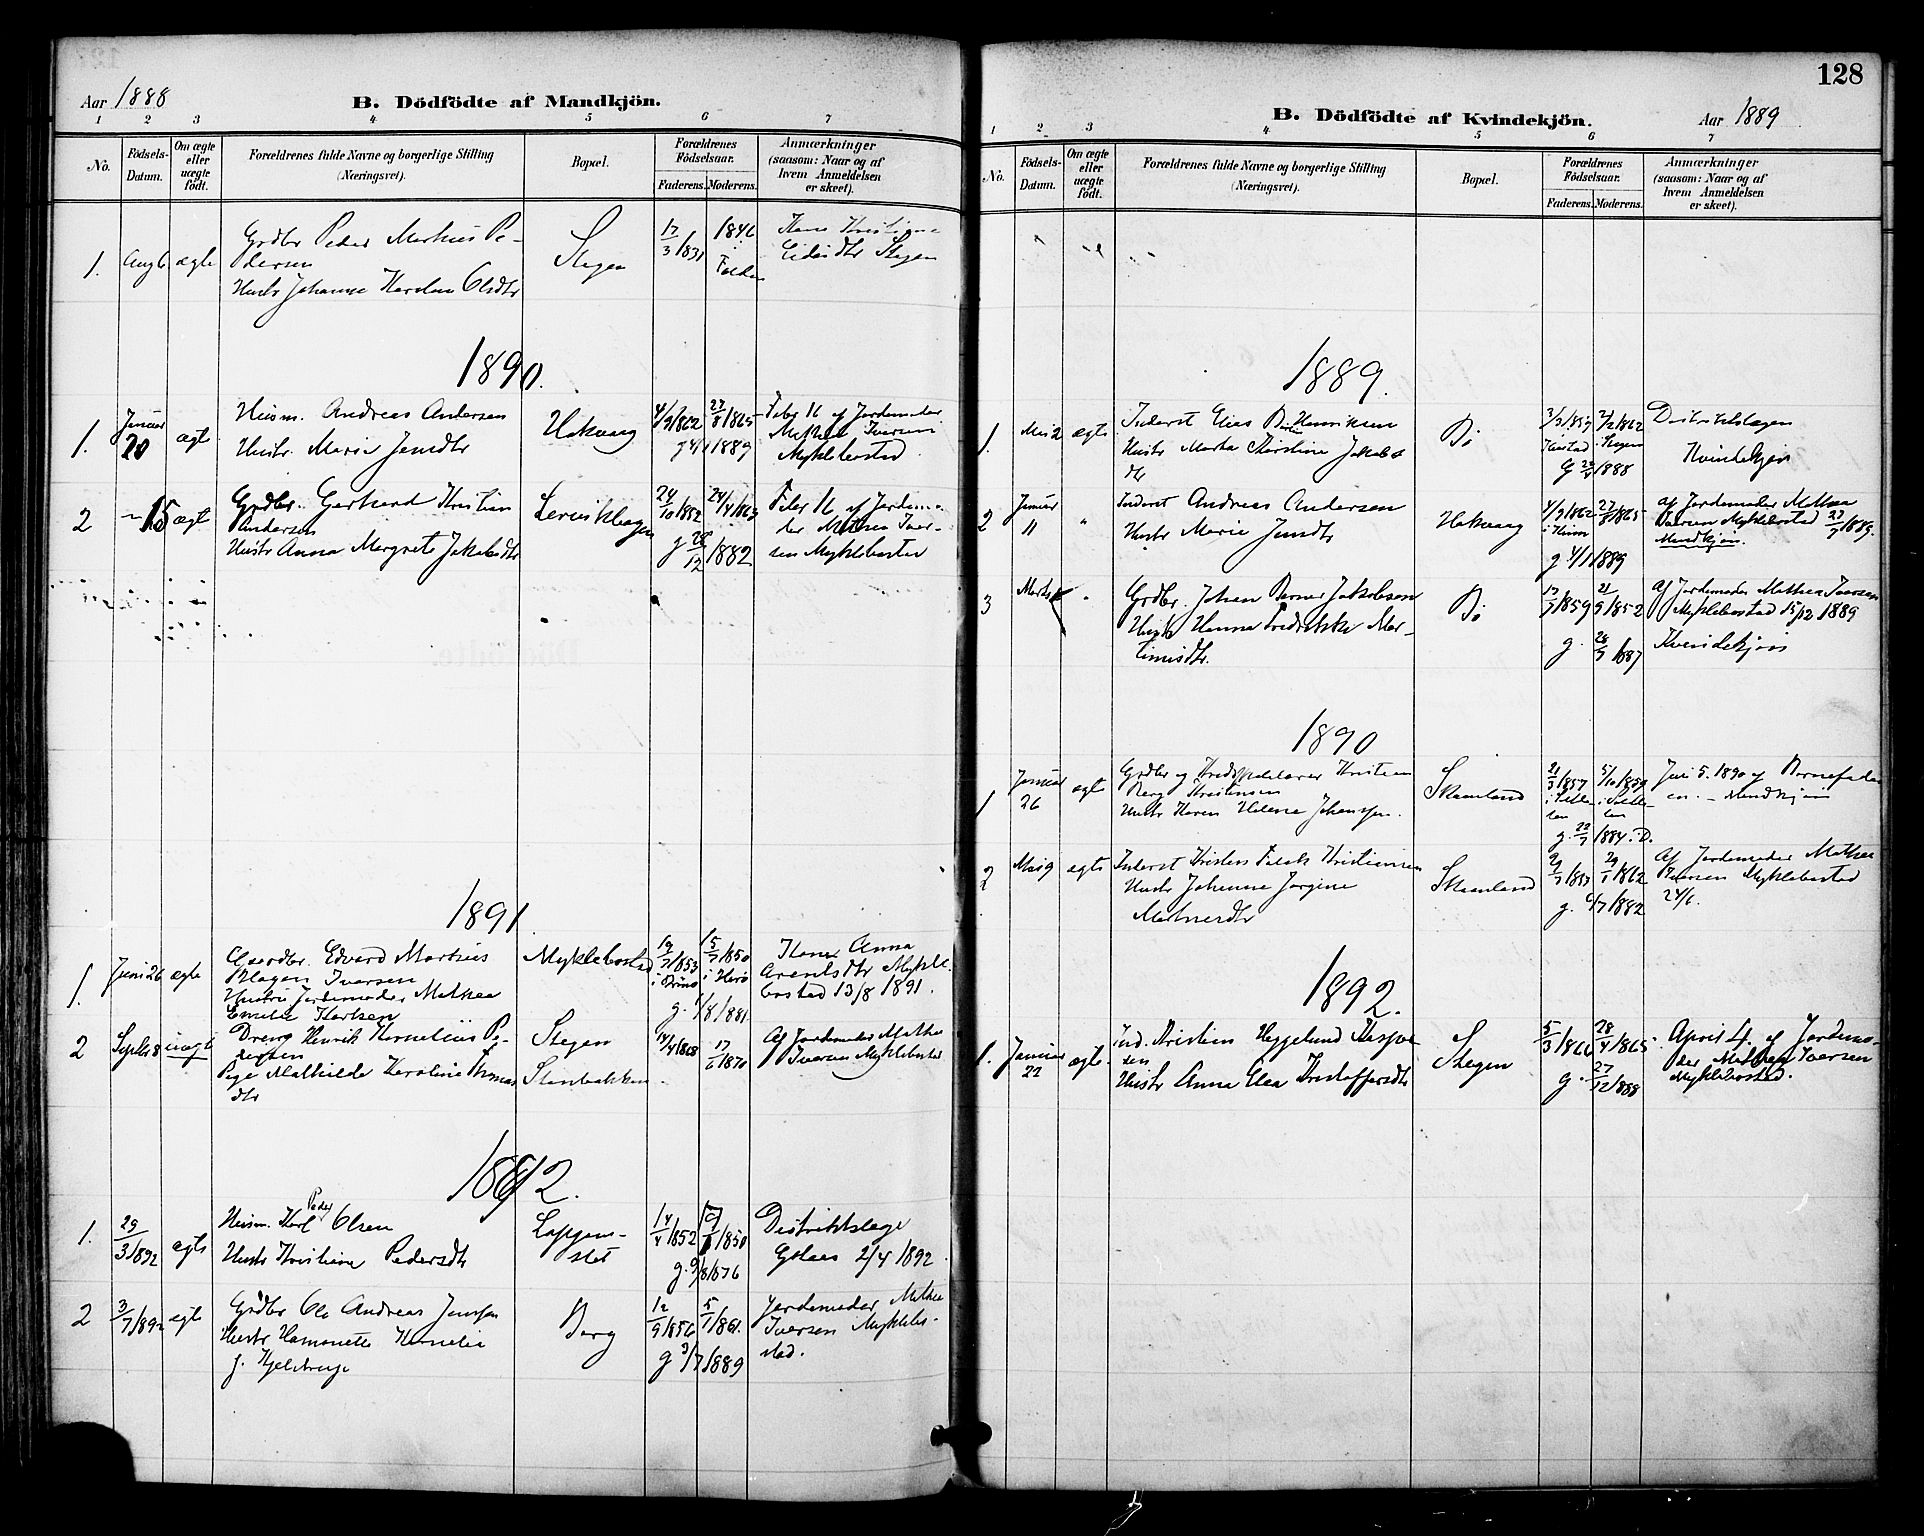 128
Aar 1888
B. Dödfödte af Mandkjön.
1 2 3 4 5 6 7
No.
Födsels-Datum.
Om ægte eller uægte født.
Forældrenes fulde Navne og borgerlige Stilling
(Næringsvei).
Bopæl.
Forældrenes Födselsaar.
Faderens. Moderens.
Anmærkninger
(saasom: Naar og af
hvem Anmeldelsen
er skeet).
1. Aug 6 ægte
Grdbr Peder Markus Pe-
dersen
Hustr Johanna Karolina Olsdtr
Stegen
17/3 1831
1846 i Folden
Stegen
1890.
1. Januar 20 ægte
Husm. Andreas Andersen
Hustr. Maria Jensdtr
Hakvaag
4/9 1862 27/8 1865
g 4/1 1889
Febr 16 af Jordemoder
Mathea Iversen
Myklebostad
2 - 15 ægte
Grdbr. Gerhard Kristian
Andersen
Hustr Anna Margrete Jakobsdtr
24/10 1852 24/4 1863
g 28/12 1882
Febr 16 af Jordemo-
der Mathea Iver-
sen Myklebostad
1891
1. Juni 26 ægte
Gaardbr. Edvard Markus
Hagen Iversen
Hustru Jordemoder Mathea
Emilie
Myklebostad
19/7 1853 15/7 1850
g. 1/8 1881
Kone Anna
Arentsdtr Mykle-
bostad 13/8 1891.
2 Septbr 8 uægte
Dreng Henrik Kornelius Pe-
dersen
Pige Mathilde Karoline Thomas
dtr
Stegen
Stenbakken
14/4 1868 17/6 1870
Af Jordemoder Mathea
Iversen Myklebostad
1892.
1. 29/3 1892 ægte
Husm. Karl Peder Olsen
Hustr Kristiane Pedersdtr
Loppen-
slet
14/4 1852
g. 9/8 1876
Distriktslæge
2/4 1892
2 3/7 1892 ægte
Grdbr Ole Andreas Jensen
Hustr Hamanette Kornelia
f. Hjelstrup
Berg
12/9 1856 5/7 1861.
g 3/7 1889
Jordemoder Mathea
Iversen Myklebo-
stad.
B. Dödfödte af Kvindekjön.
Aar 1889
1 2 3 4 5 6 7
No.
Födsels-Datum.
Om ægte eller uægte født.
Forældrenes fulde Navne og borgerlige Stilling
(Næringsvei).
Bopæl.
Forældrenes Födselsaar.
Faderens. Moderens.
Anmærkninger
(saasom: Naar og af
hvem Anmeldelsen
er skeet).
1889.
1. Mai 2 ægte
Inderst Elias Henriksen
Hustr Marta Kristine Jakobs
dtr
Bö
3/3 1859 2/2 1862
1888
Distriktslægen
Kvindekjön
2 Januar 11 "
Inderst Andreas Andersen
Hustr Marie Jensdtr
Hakvaag
4/9 1862 27/8 1865
g 4/1 1889
af Jordemoder Mathea
Iversen Myklebostad 1889.
Mandkjön.
3 Marts "
Grdbr. Johan Berner Jakobsen
Hustr Hanna Fredrikke Mar-
tinusdtr.
Bö
17/7 1859 21/9 1852
g. 28/9 1887
af Jordemoder Mathea Iversen
Myklebostad 15/12 1889
Kvindekjön
1890
1 Januar 26 ægte
Grdbr og Kristian
Berg Kristensen
Hustr Karen Helene Johansen.
Skaanland
21/3 1857 5/10 1859
g. 22/7 1884
Juni 5. 1890 af Barnefader
en. - Mandkjön
2 Mai 9 ægte
Inderst Kristen Falch Kristiansen
Hustr Johanna Jorgine
Martinusdtr
Skaanland
29/1 1862
g. 1882
Af Jordemoder Mathea
Iversen Myklebostad
24/6.
1892.
1. Januar 22 ægte.
Ind. Kristian Heggelund Kaspe
sen
Hustr Anna Elea Kristoffersdtr
Stegen
5/3 1866 28/4 1865
g. 27/12 1888
April 4. af Jordemo-
der Mathea Iversen
Myklebostad.